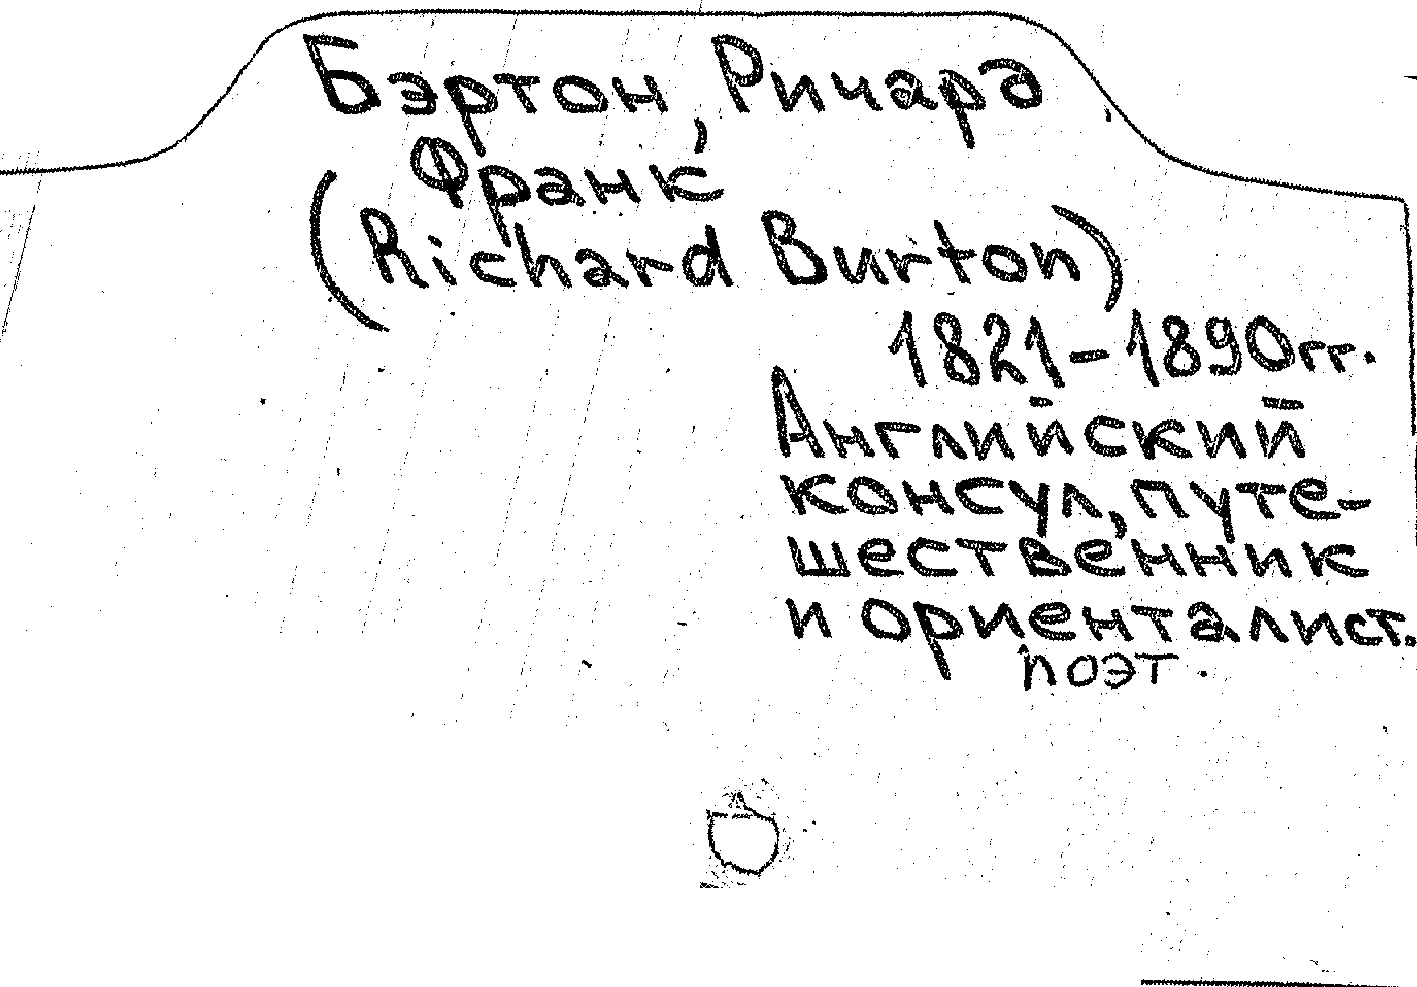 Бэртон, Ричард
Франк
(Richard Burton)
1821-1890гг.
Английский
консул, путе-
шественник
и ориенталист.
поэт.